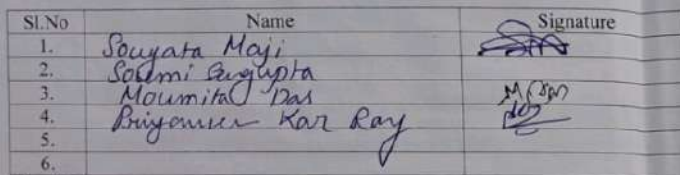 Sl.No Name Signature
1. Sougata Maji
2. Soumi Sengupta
3. Moumita Das
4. Kar Ray
5.
6.